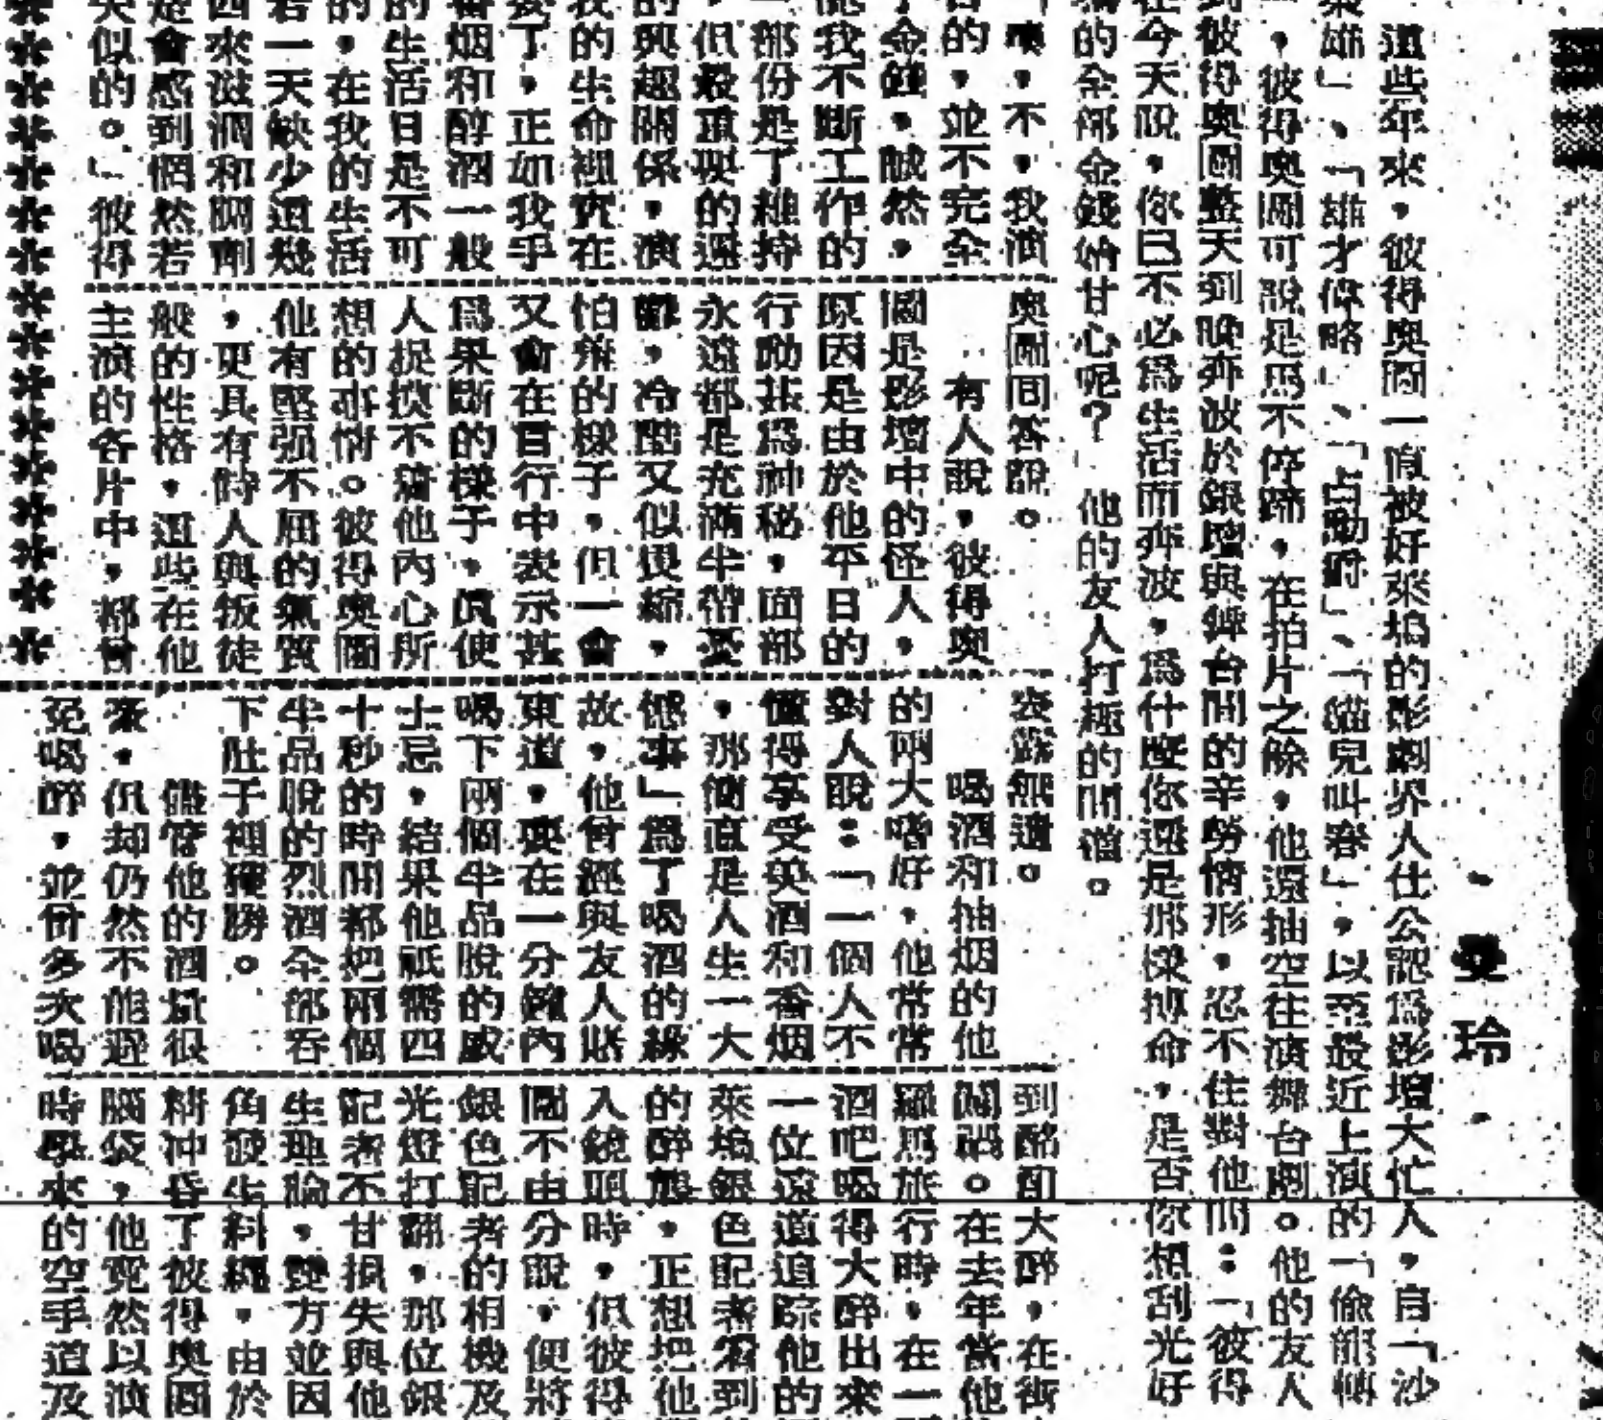 曼玲
這些年來，彼得奧圖一直被好萊塢的影劇界人仕公認爲影壇大忙人，自「沙
雄」、「雄才偉略」、「占勳爵」、「貓兒叫春」，以至最近上演的「偷龍轉
，彼得奧圖可說是馬不停蹄，在拍片之餘，他還抽空往演舞台劇。他的友人
到彼得奧圖整天到晚奔波於銀壇與舞台間的辛勞情形，忍不住對他問：「彼得
在今天說，你已不必爲生活而奔波，爲什麼你還是那樣搏命，是否你想刮光好
的全部金錢始甘心呢？　他的友人打趣的問道。
，不，我演
的，並不完全
金錢，誠然，
我不斷工作的
部份是了維持
但最重要的還
的興趣關係，演
我的生命裡實在
了，正如我手
香烟和醇酒一般
的生活日是不可
的，在我的生活
若一天缺少這幾
四來滋潤和調劑
是會感到惘然若
失似的。」彼得
奧圖回答說。
有人說，彼得奧
圖是影壇中的怪人，
原因是由於他平日的
行動甚爲神秘，面部
永遠都是充滿半帶憂
鬱，冷酷又似畏縮，
怕癢的樣子，但一會
又會在言行中表示甚
爲果斷的樣子，眞使
人捉摸不著他內心所
想的事情。彼得奧圖
他有堅强不屈的氣質
，更具有詩人與叛徒
般的性格，這些在他
主演的各片中，都曾
表露無遺。
喝酒和抽烟的他
的兩大嗜好，他常常
對人說：「一個人不
懂得享受美酒和香烟
，那簡直是人生一大
憾事」爲了喝酒的緣
故，他曾經與友人賭
東道，要在一分鐘內
喝下兩個半品脫的威
士忌，結果他祗需四
十秒的時間都把兩個
半品脫的烈酒全部吞
下肚子裡獲勝。
儘管他的酒量很
來，但却仍然不能避
免喝醉，並曾多次喝
到酩酊大醉，在街
鬧禍。在去年當他
羅馬旅行時，在一
酒吧喝得大醉出來
一位遠道追踪他的
萊塢銀色記者看到
的醉態，正想把他
入鏡頭時，但彼得
圖不由分說，便將
銀色記者的相機及
光燈打翻，那位銀
記者不甘損失與他
生理論，雙方並因
角發生糾纏，由於
精冲昏了彼得奧圖
腦袋，他竟然以演
時學來的空手道及